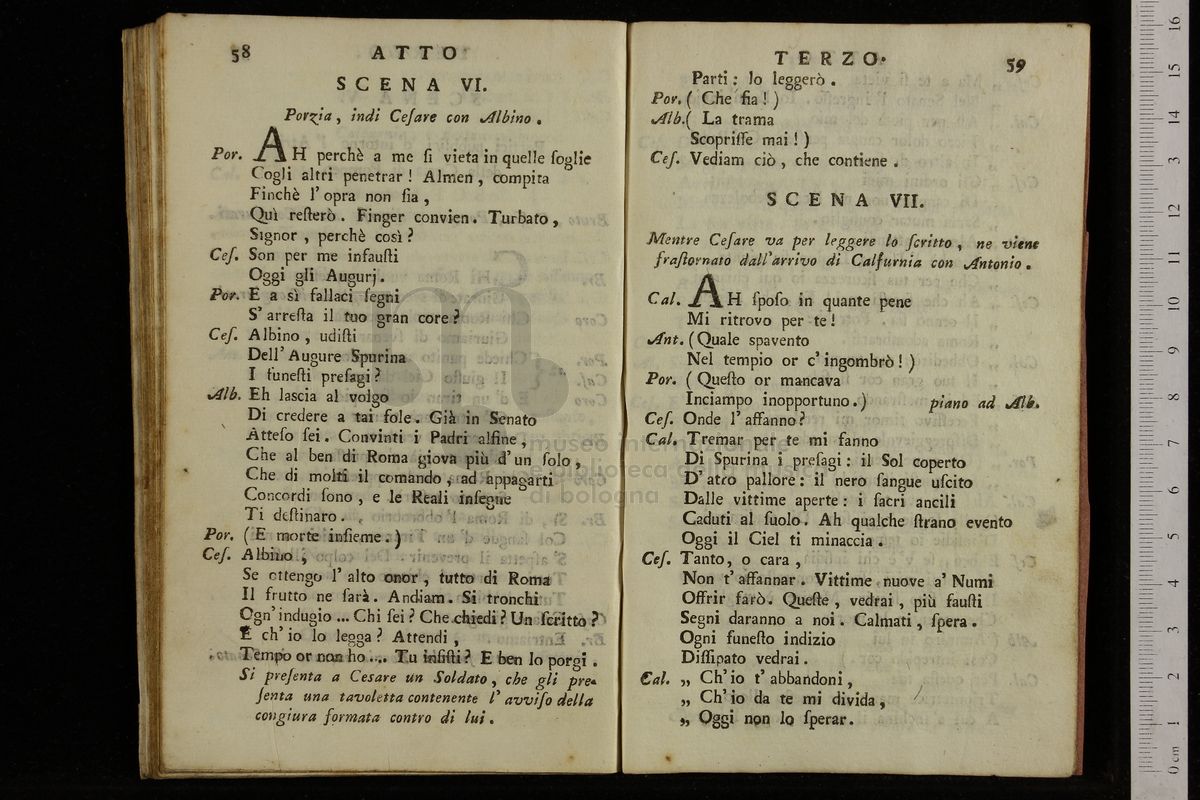 58 ATTO
SCENA VI.
Porzia, indi Ceſare con Albino.
Por. AH perchè a me ſi vieta in quelle ſoglie
Cogli altri penetrar! Almen, compita
Finchè l'opra non ſia,
Quì reſterò. Finger convien. Turbato,
Signor, perchè così?
Ceſ. Son per me infauſti
Oggi gli Augurj.
Por. E a sì fallaci ſegni
S'arreſta il tuo gran core?
Ceſ. Albino, udiſti
Dell'Augure Spurina
I funeſti preſagi?
Alb. Eh laſcia al volgo
Di credere a tai fole. Già in Senato
Atteſo ſei. Convinti i Padri alfine,
Che al ben di Roma giova più d'un ſolo,
Che di molti il comando, ad appagarti
Concordi ſono, e le Reali inſegne
Ti deſtinaro.
Por. (E morte inſieme.)
Ceſ. Albino;
Se ottengo l'alto onor, tutto di Roma
Il frutto ne ſarà. Andiam. Si tronchi
Ogn'indugio ... Chi ſei? Che chiedi? Un ſcritto?
E ch'io lo legga? Attendi,
Tempo or non ho .... Tu inſiſti? E ben lo porgi.
Si preſenta a Cesare un Soldato, che gli pre-
ſenta una tavoletta contenente l'avviſo della
congiura formata contro di lui.
TERZO. 59
Parti: lo leggerò.
Por. (Che fia!)
Alb. (La trama
Scopriſſe mai!)
Ceſ. Vediam ciò, che contiene.
SCENA VII.
Mentre Ceſare va per leggere lo ſcritto, ne viene
fraſtornato dall'arrivo di Calfurnia con Antonio.
Cal. AH ſpoſo in quante pene
Mi ritrovo per te!
Ant. (Quale spavento
Nel tempio or c'ingombrò!)
Por. (Queſto or mancava
Inciampo inopportuno.) piano ad Alb.
Ceſ. Onde l'affanno?
Cal. Tremar per te mi fanno
Di Spurina i preſagi: il Sol coperto
D'atro pallore: il nero ſangue uſcito
Dalle vittime aperte: i ſacri ancili
Caduti al ſuolo. Ah qualche ſtrano evento
Oggi il Ciel ti minaccia.
Ceſ. Tanto, o cara,
Non t'affannar. Vittime nuove a' Numi
Offrir farò. Queſte, vedrai, più fauſti
Segni daranno a noi. Calmati, ſpera.
Ogni funeſto indizio
Diſſipato vedrai.
Cal. „ Ch'io t'abbandoni,
„ Ch'io da te mi divida,
„ Oggi non lo ſperar.
museo internazionale
e biblioteca della musica
di bologna
0 cm 1 2 3 4 5 6 7 8 9 10 11 12 13 14 15 16